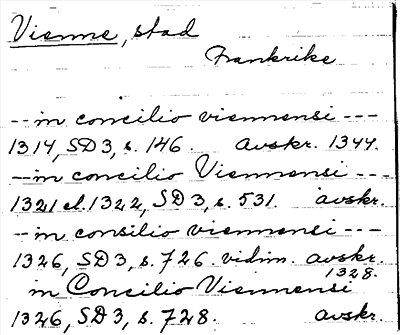 Vienne, stad
Frankrike
-- in concilio viennensi ---
1314, SD3, s. 146. avskr. 1344.
-- in concilio Viennensi ---
1321 el. 1322, SD3, s. 531. avskr.
-- in consilio viennensi ---
1326, SD3, s. 726. vidim. avskr.
1328.
in Concilio Viennensi
1326, SD3, s. 728. avskr.